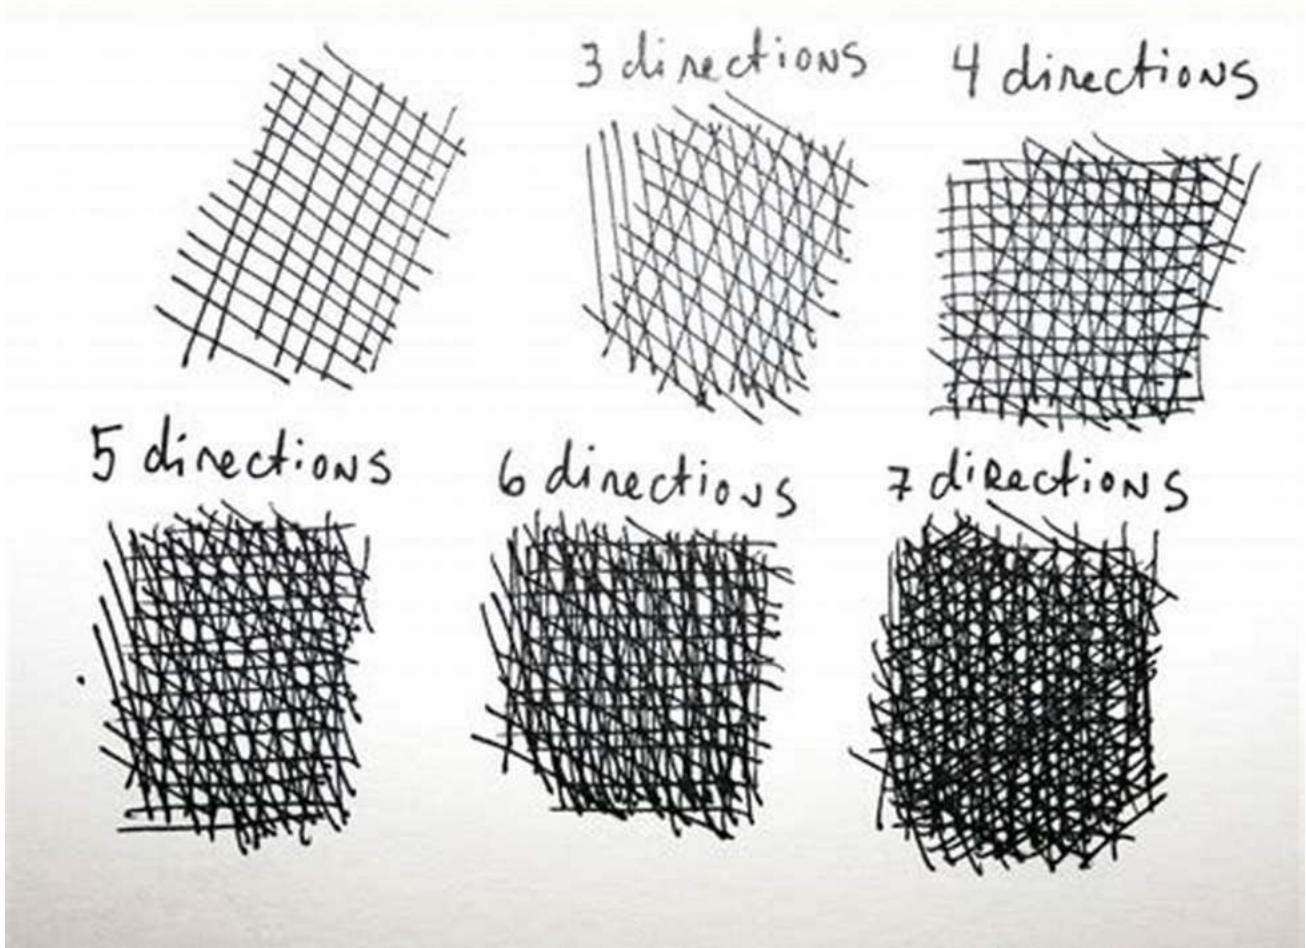 3 directions
4 directions
5 directions
6 directions
7 directions